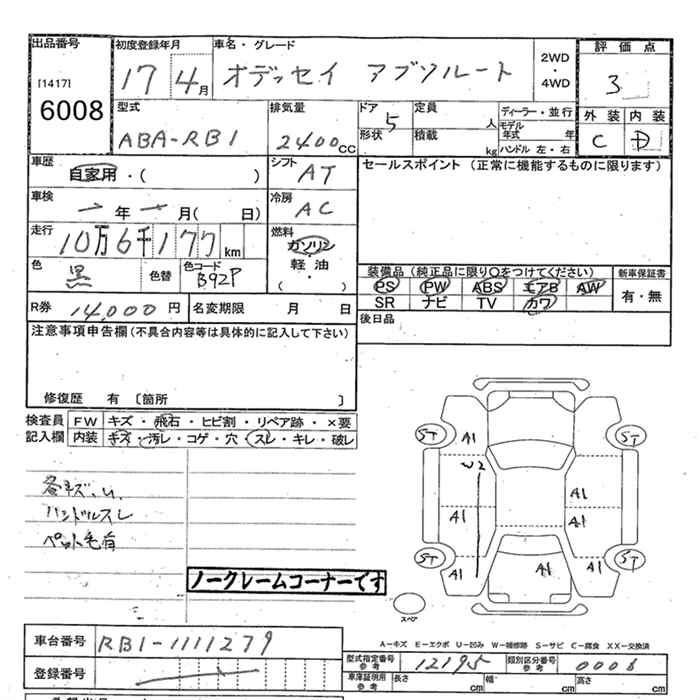 出品番号 初度登録年月 車名・グレード 2WD 4WD 評価点
[1417] 17 4月 オデッセイ アブソルート 3
6008 型式 排気量 ドア 5 定員 人 ディーラー・並行 外装 内装
ABA-RB1 2400CC 形状 積載 kg モデル年式 年 ハンドル 左・右 C D
車歴 自家用・( ) シフト AT セールスポイント (正常に機能するものに限ります)
車検 年 月( 日) 冷房 AC
走行 10万6千177km 燃料 ガソリン 軽油 ( ・ )
色 黒 色替 色コード B92P
装備品 (純正品に限り○をつけてください) 新車保証書
PS PW ABS エアB AW 有・無
SR ナビ TV カワ
R券 14,000円 名変期限 月 日 後日品
注意事項申告欄(不具合内容等は具体的に記入して下さい)
修復歴 有 〔箇所 〕
検査員 FW キズ・飛石・ヒビ割・リペア跡・×要
記入欄 内装 キズ・汚レ・コゲ・穴・スレ・キレ・破レ
各キズ、U、
ハンドルスレ
ペット毛有
ノークレームコーナーです
ST A1 ST
W2
A1 A1
A1
ST A1 A1 A1 ST
スペア
A-キズ E-エクボ U-凹み W-補修跡 S-サビ C-腐食 XX-交換済
車台番号 RB1-1111279
型式指定番号 参考 12195 類別区分番号 参考 0006
登録番号
車庫証明用 参考 長さ cm 幅 cm 高さ cm